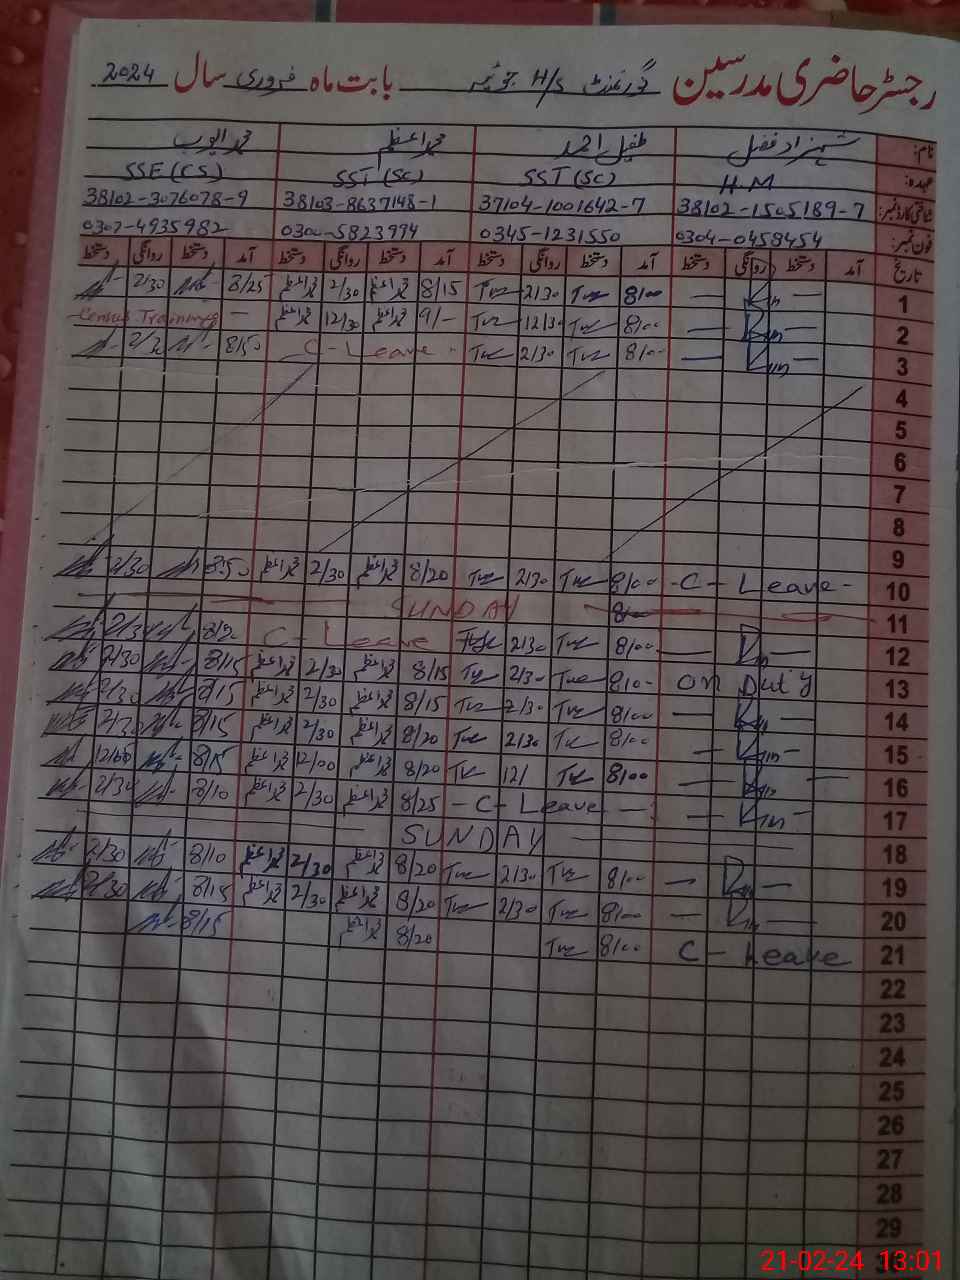 رجسٹر حاضری مدرسین گورنمنٹ H/S بابت ماہ فروری سال 2024
نام: شہزاد فضل طفیل احمد محمد اعظم محمد ایوب
عہدہ: H.M SST (SC) SST (SC) SSE (CS)
شناختی کارڈ نمبر: 38102-1505189-7 37104-1001642-7 38103-8637148-1 38102-3076078-9
فون نمبر: 0304-0458454 0345-1231550 0300-5823974 0307-4935982
تاریخ آمد دستخط روانگی دستخط آمد دستخط روانگی دستخط آمد دستخط روانگی دستخط آمد دستخط روانگی دستخط
1 — — 8/00 2/30 8/15 محمد اعظم 2/30 محمد اعظم 8/25 2/30
2 — — 8/00 12/30 9/- محمد اعظم 12/30 محمد اعظم — Census Training
3 — — 8/00 2/30 C - Leave - 8/50 2/30
4
5
6
7
8
9
10 -C- Leave- 8/00 2/30 8/20 محمد اعظم 2/30 محمد اعظم 8:50 2/30
11 8/00 SUNDAY
12 — — 8/00 2/30 C - Leave 2/30
13 On Duty 8/00 2/30 8/15 محمد اعظم 2/30 محمد اعظم 8/15 2/30
14 — — 8/00 2/30 8/15 محمد اعظم 2/30 محمد اعظم 8/15 2/30
15 — — 8/00 2/30 8/20 محمد اعظم 2/30 محمد اعظم 8/15 2/30
16 — — 8/00 12/ 8/20 محمد اعظم 12/00 محمد اعظم 8/15
17 — — - C - Leave - 8/25 محمد اعظم 2/30 محمد اعظم 8/10 2/30
18 SUNDAY
19 — — 8/00 2/30 8/20 محمد اعظم 2/30 محمد اعظم 8/10 2/30
20 — — 8/00 2/30 8/20 محمد اعظم 2/30 محمد اعظم 8/15 2/30
21 C - Leave 8/00 8/20 محمد اعظم 8/15
22
23
24
25
26
27
28
29
21-02-24 13:01